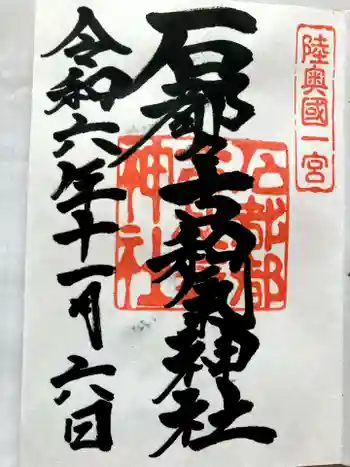 陸奥國一宮
石都々古和氣神社
令和六年十一月六日
石都都
神社